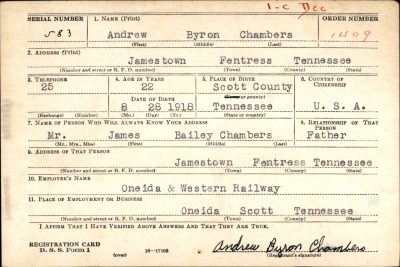 1-c Dec
SERIAL NUMBER 1. NAME (Print) ORDER NUMBER
583 Andrew Byron Chambers 1409
(First) (Middle) (Last)
2. ADDRESS (Print)
Jamestown Fentress Tennessee
(Number and street or R. F. D. number) (Town) (County) (State)
3. TELEPHONE 4. AGE IN YEARS 5. PLACE OF BIRTH 6. COUNTRY OF CITIZENSHIP
25 22 Scott County
(Town or county)
DATE OF BIRTH
8 28 1918 Tennessee U. S. A.
(Exchange) (Number) (Mo.) (Day) (Yr.) (State or country)
7. NAME OF PERSON WHO WILL ALWAYS KNOW YOUR ADDRESS 8. RELATIONSHIP OF THAT PERSON
Mr. James Bailey Chambers Father
(Mr., Mrs., Miss) (First) (Middle) (Last)
9. ADDRESS OF THAT PERSON
Jamestown Fentress Tennessee
(Number and street or R. F. D. number) (Town) (County) (State)
10. EMPLOYER'S NAME
Oneida & Western Railway
11. PLACE OF EMPLOYMENT OR BUSINESS
Oneida Scott Tennessee
(Number and street or R. F. D. number) (Town) (County) (State)
I AFFIRM THAT I HAVE VERIFIED ABOVE ANSWERS AND THAT THEY ARE TRUE.
REGISTRATION CARD
D. S. S. Form 1 (over) 16—17105 Andrew Byron Chambers
(Registrant's signature)